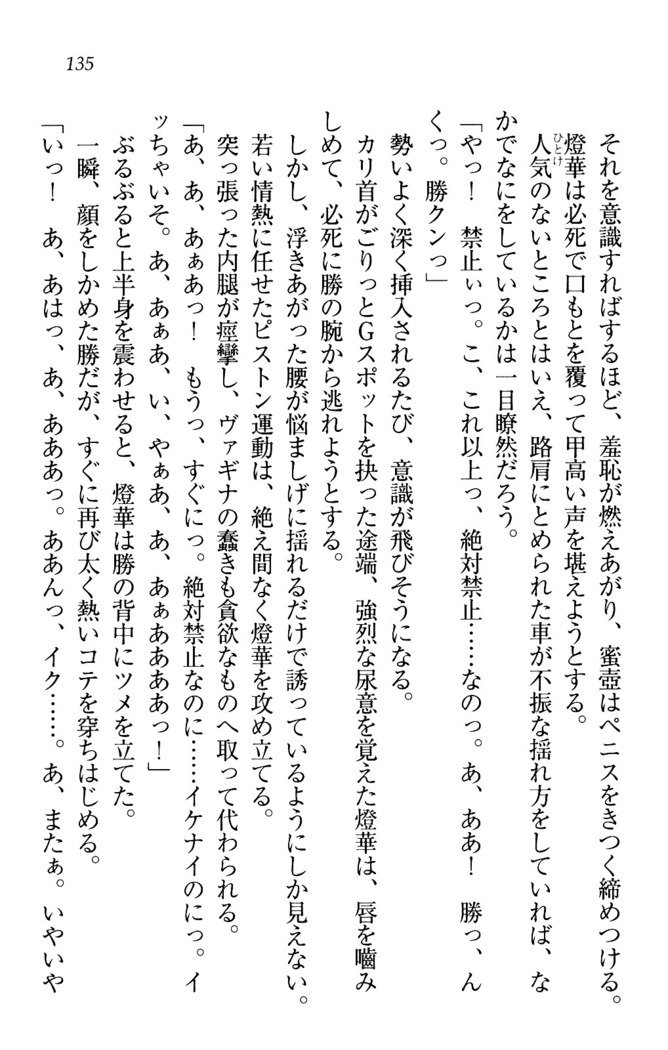 135
それを意識すればするほど、羞恥が燃えあがり、蜜壺はペニスをきつく締めつける。
燈華は必死で口もとを覆って甲高い声を堪えようとする。
人気のないところとはいえ、路肩にとめられた車が不振な揺れ方をしていれば、な
ひとけ
かでなにをしているかは一目瞭然だろう。
「やっ！　禁止ぃっ。こ、これ以上っ、絶対禁止……なのっ。あ、ああ！　勝っ、ん
くっ。勝クンっ」
勢いよく深く挿入されるたび、意識が飛びそうになる。
カリ首がごりっとGスポットを抉った途端、強烈な尿意を覚えた燈華は、唇を噛み
しめて、必死に勝の腕から逃れようとする。
しかし、浮きあがった腰が悩ましげに揺れるだけで誘っているようにしか見えない。
若い情熱に任せたピストン運動は、絶え間なく燈華を攻め立てる。
突っ張った内腿が痙攣し、ヴァギナの蠢きも貪欲なものへ取って代わられる。
「あ、あ、あぁあっ！　もうっ、すぐにっ。絶対禁止なのに……イケナイのにっ。イ
ッちゃいそ。あ、あぁあ、い、やぁあ、あ、あぁああああっ！」
ぶるぶると上半身を震わせると、燈華は勝の背中にツメを立てた。
一瞬、顔をしかめた勝だが、すぐに再び太く熱いコテを穿ちはじめる。
「いっ！　あ、あはっ、あ、あああっ。ああんっ、イク……。あ、またぁ。いやいや